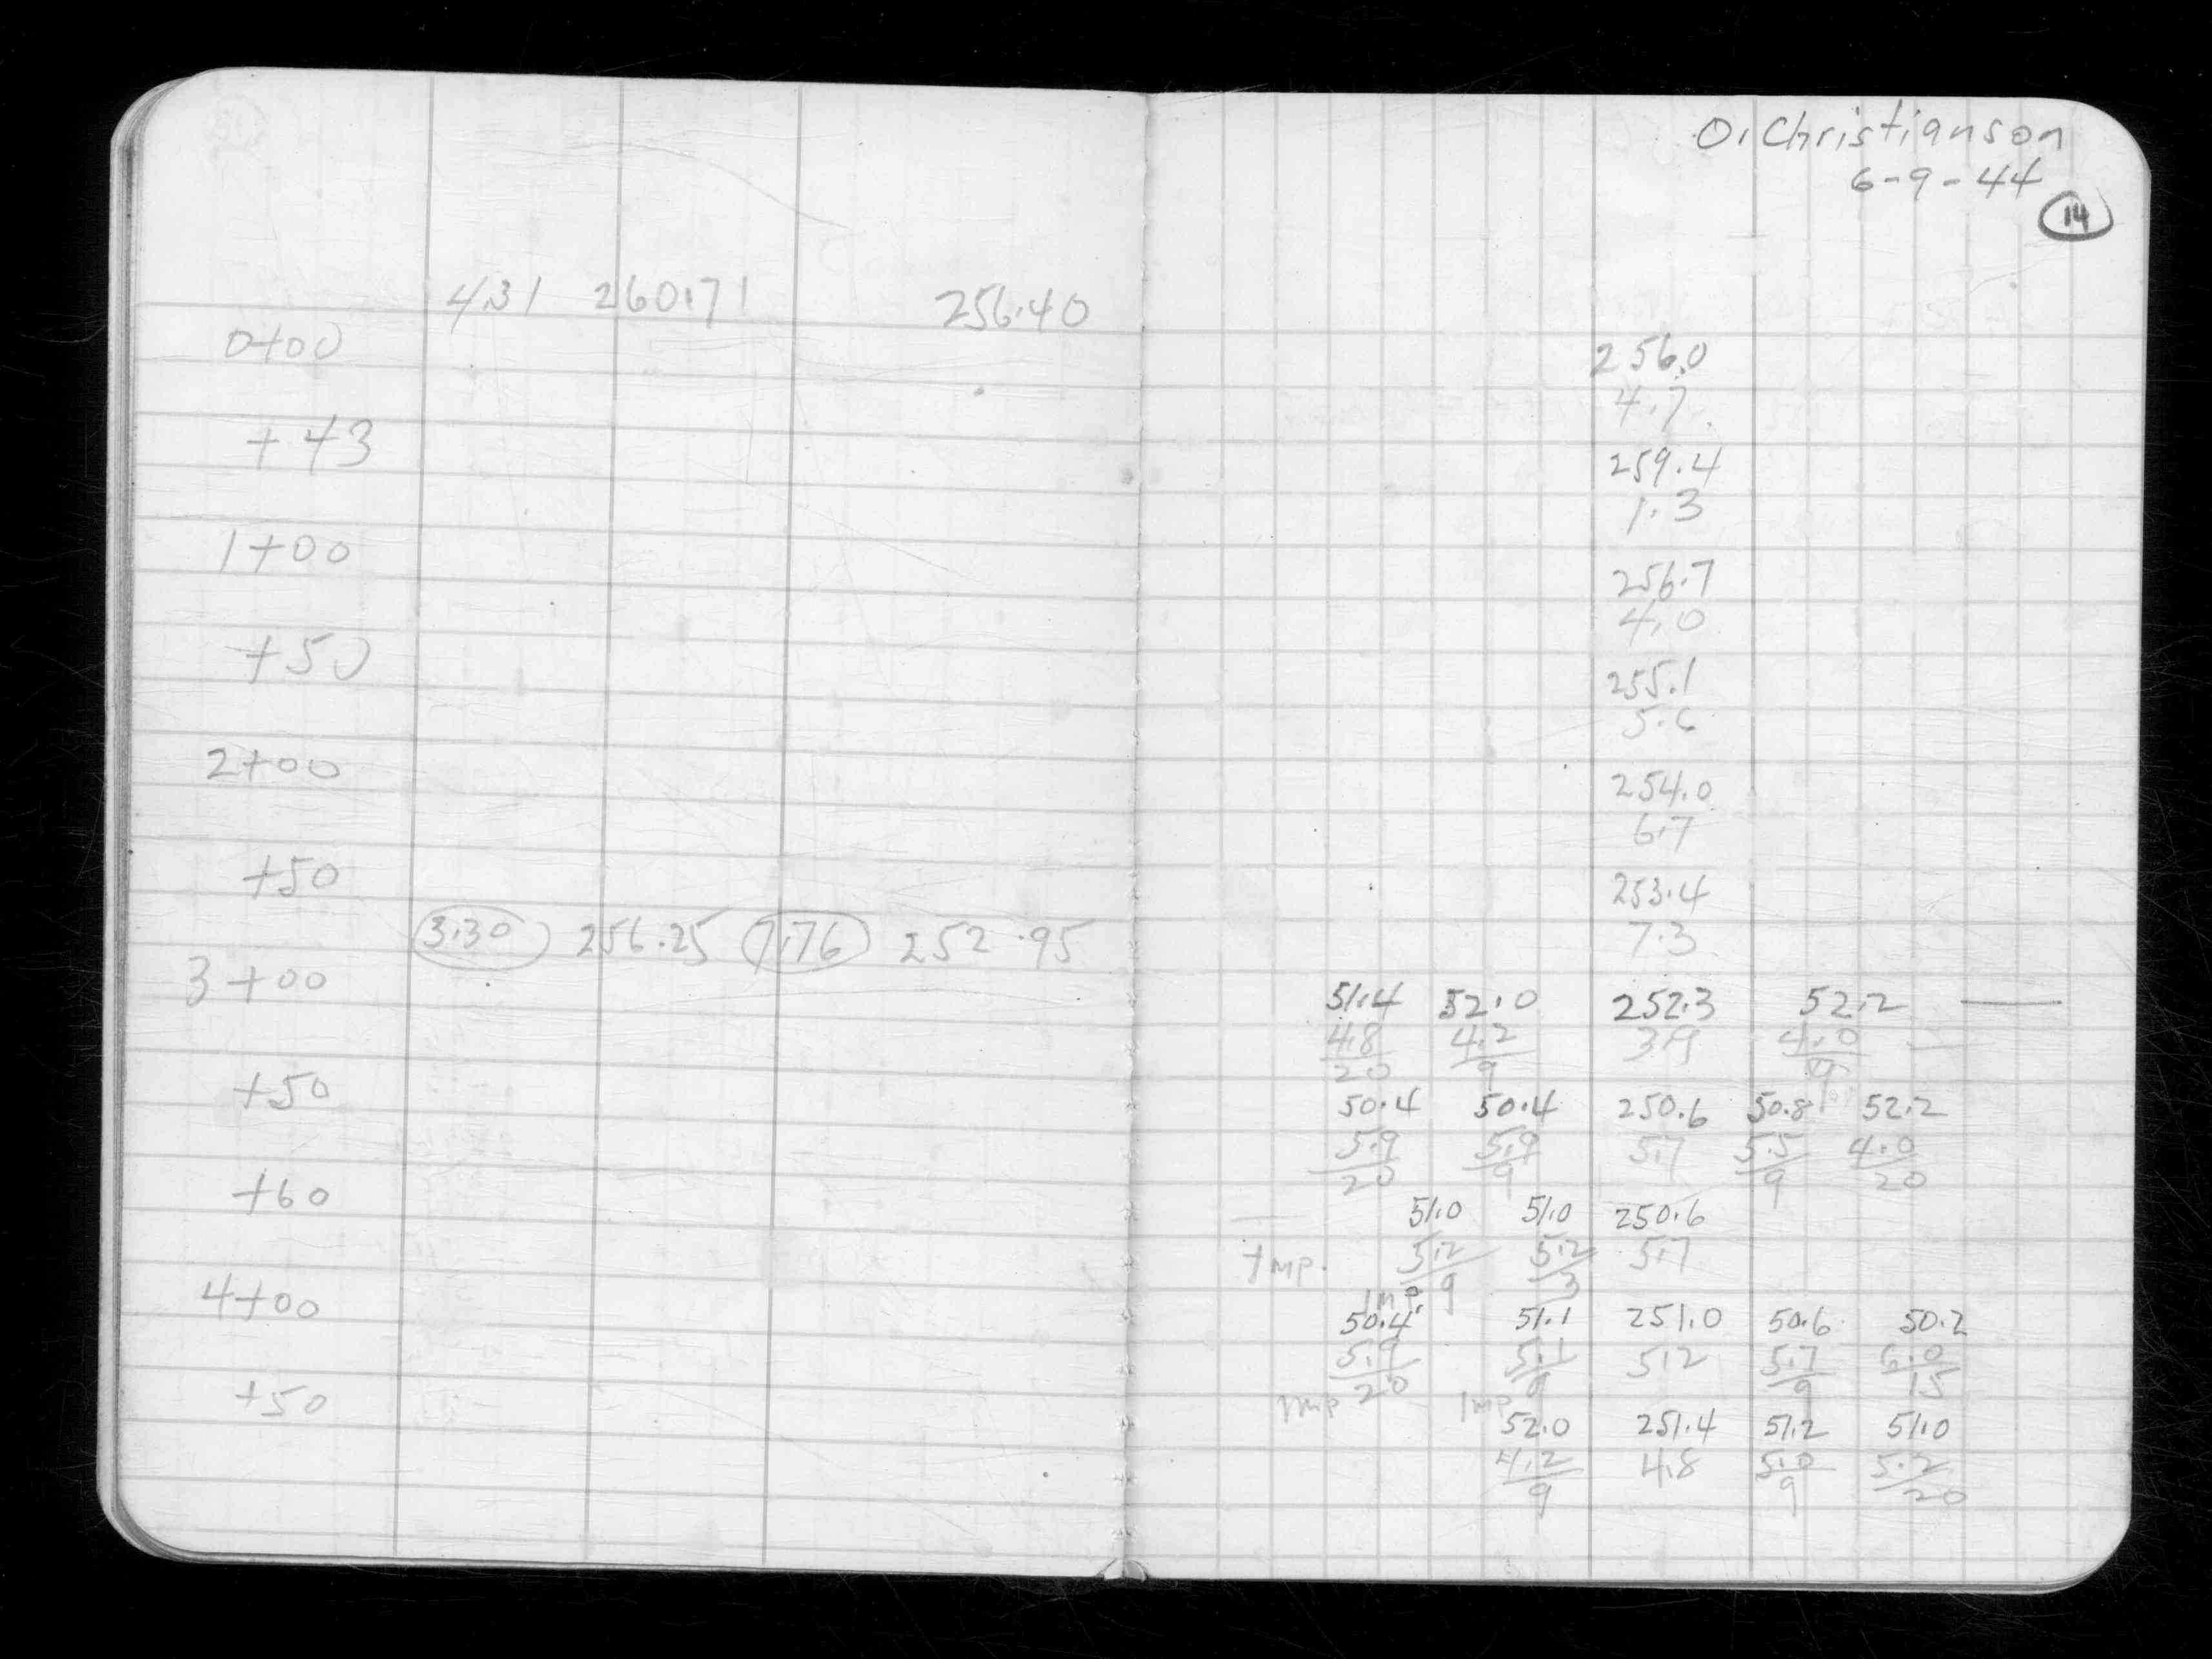 O. Christianson
6-9-44
14
4.31 260.71 256.40
0+00
256.0
4.7
+43
259.4
1.3
1+00
256.7
4.0
+50
255.1
5.6
2+00
254.0
6.7
+50
253.4
7.3
3.30 256.25 7.76 252.95
3+00
51.4 52.0 252.3 52.2
4.8 4.2 3.9 4.0
20 9 9
+50
50.4 50.4 250.6 50.8 52.2
5.9 5.9 5.7 5.5 4.0
20 9 9 20
+60
51.0 51.0 250.6
Imp. 5.2 5.2 5.7
9 3
4+00
Imp.
50.4 51.1 251.0 50.6 50.2
5.9 5.1 5.2 5.7 6.0
20 9 9 15
+50
Imp Imp
52.0 251.4 51.2 51.0
4.2 4.8 5.0 5.2
9 9 20